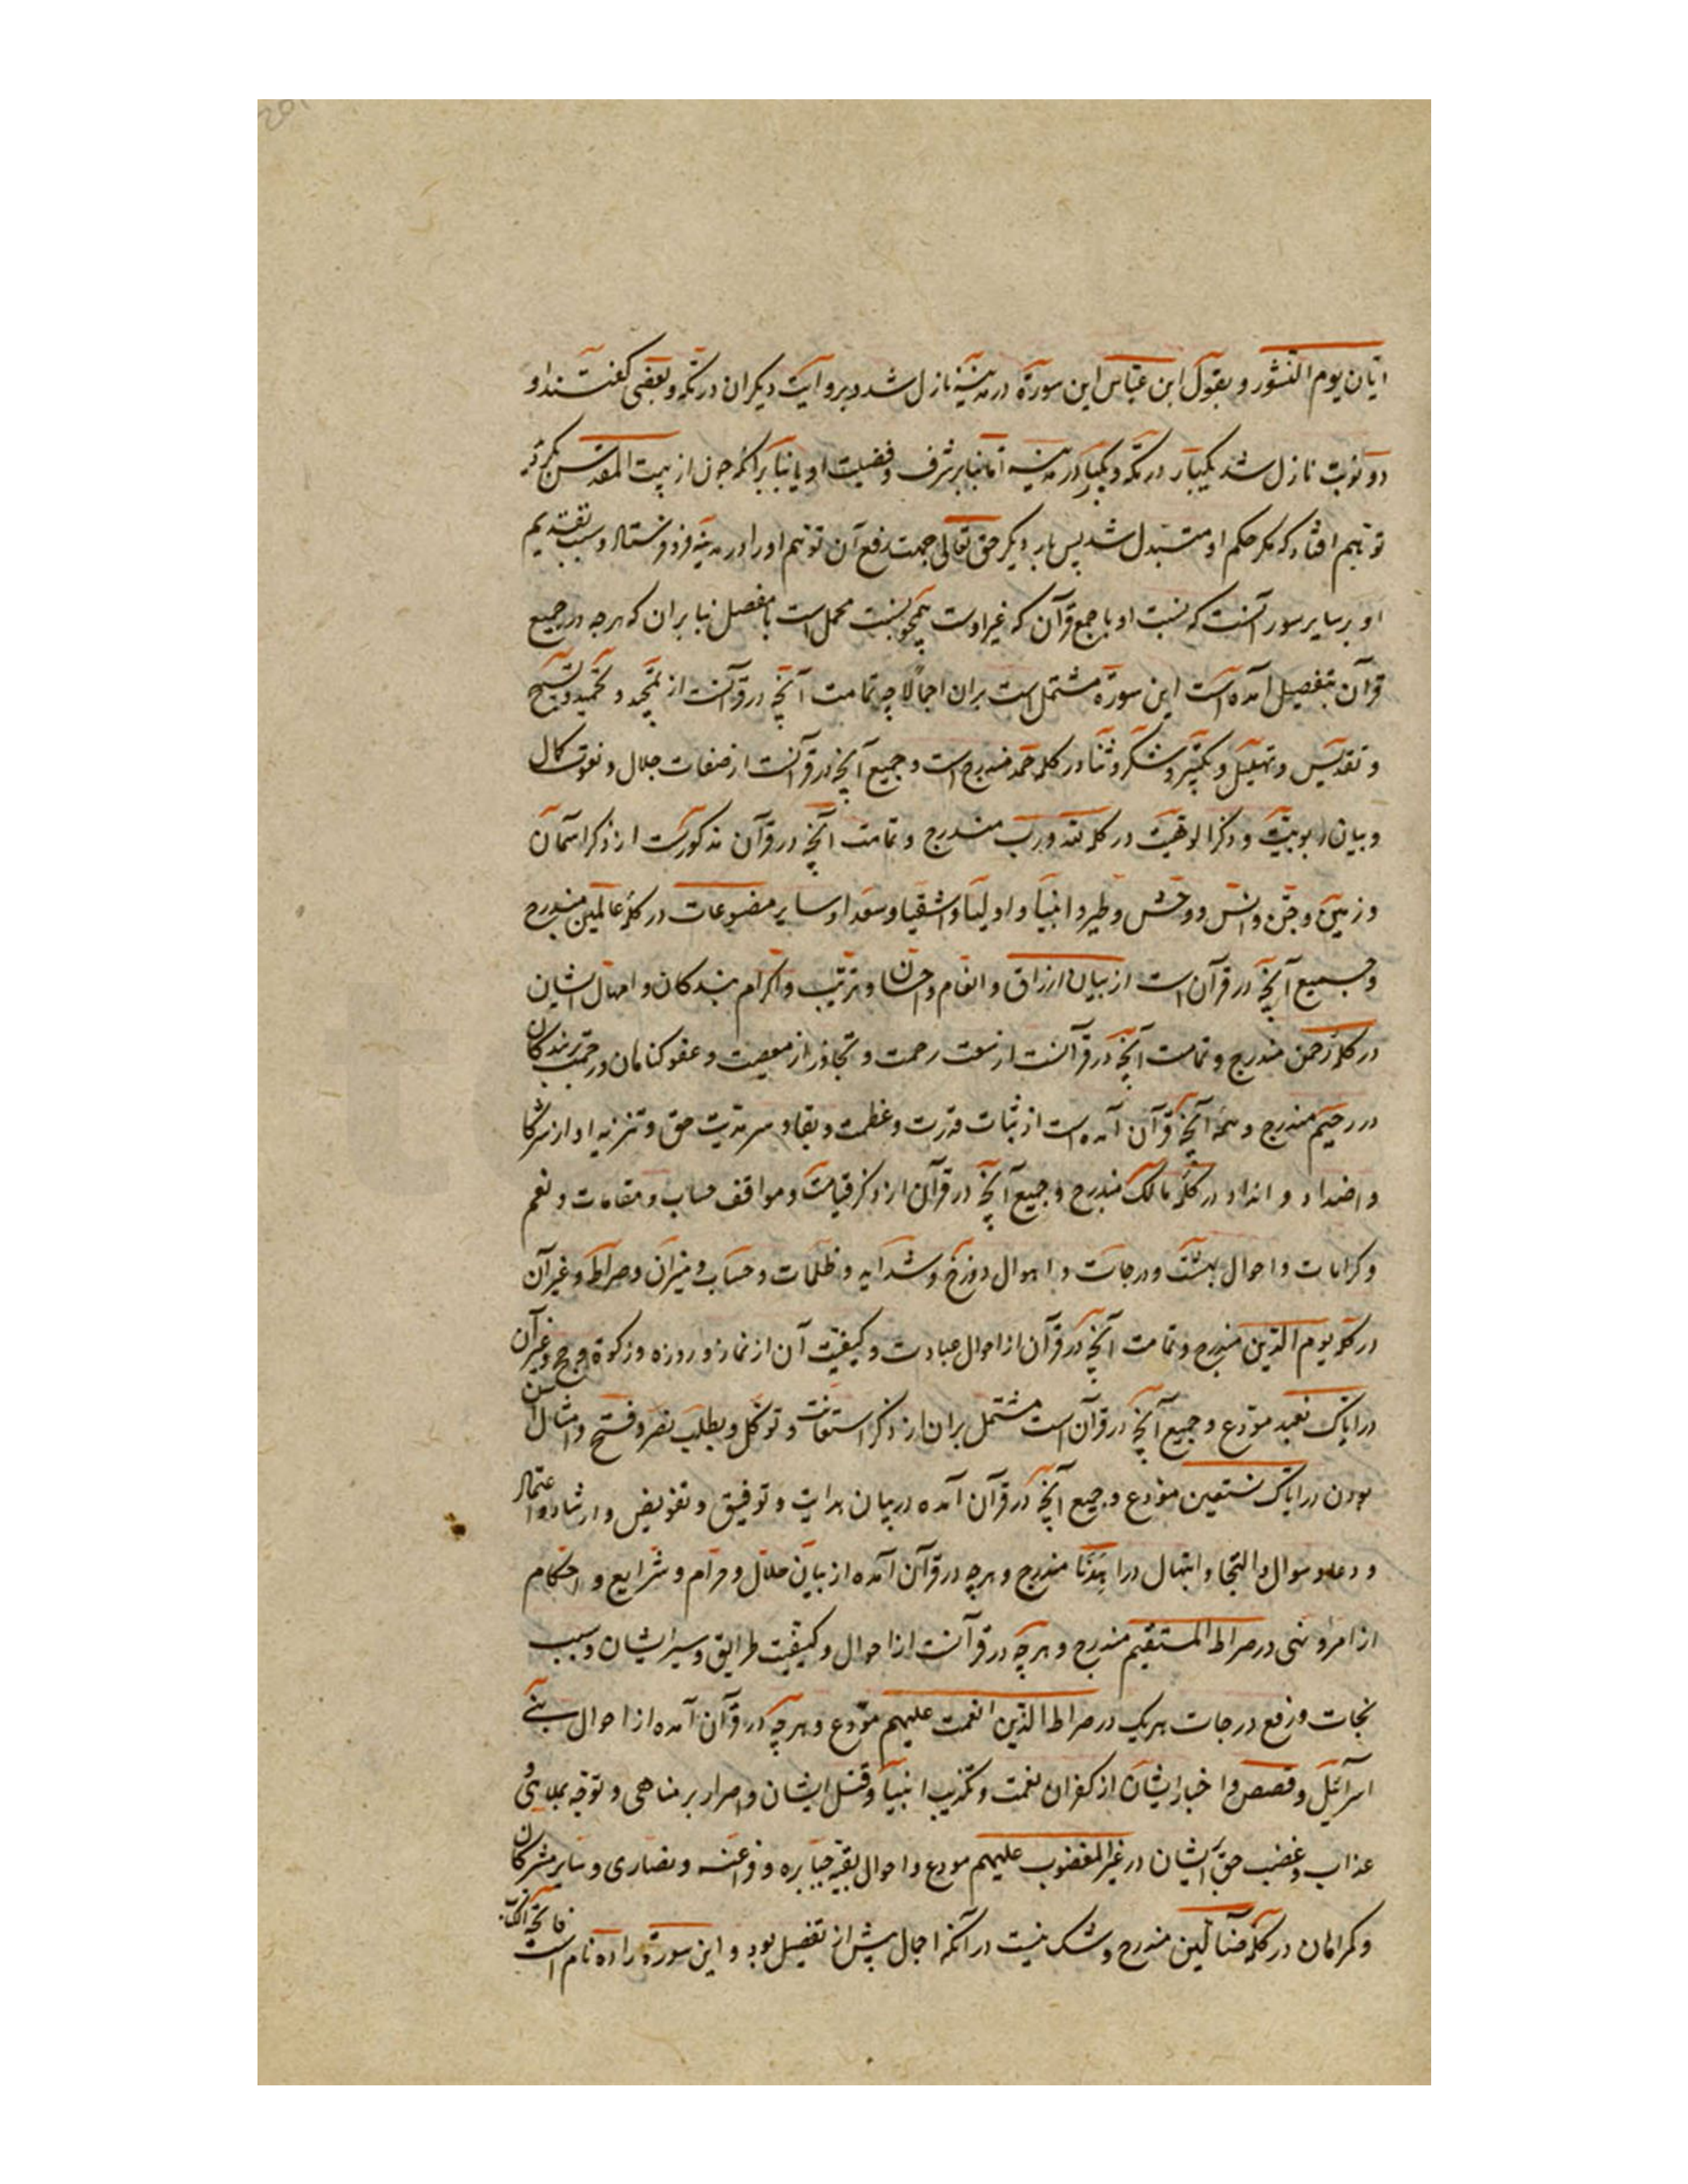 اتیان یوم النشور و بقول ابن عباس این سورة در مدینه نازل شد و بروایت دیکران در مکه و بعضی کفتند او
دو نوبت نازل شد یکبار در مکه و یکبار در مدینه اما بنابر شرف و فضیلت او یا بنابر آنکه چون از بیت المقدس
توهم افتاد که مکر حکم او متبدل شد پس بار دیکر حق تعالی جهت رفع آن توهم او را در مدینه فرو فرستاد و سبب تقدیم
او بر سایر سور آنست که نسبت او با جمع قرآن که غیر اوست همچو نسبت مجمل است با مفصل بنا بران که هر چه در جمیع
قرآن بتفصیل آمده است این سورة مشتمل است بران اجمالا چه تمامت آنچه در قرآنست از تمجید و تحمید و تسبیح
و تقدیس و تهلیل و تکبیر و شکر و ثنا در کلمه حمد مندرج است و جمیع آنچه در قرآنست از صفات جلال و نعوت کمال
و بیان ربوبیت و ذکر الوهیت در کلمه لله و رب مندرج و تمامت آنچه در قرآن مذکورست از ذکر آسمان
و زمین و جن و انس و وحش و طیر و انبیا و اولیا و اشقیا و سعدا و سایر مصنوعات در کلمه عالمین مندرج
و جمیع آنچه در قرآن است از بیان ارزاق و انعام و احسان و تربیت و اکرام بندکان و امهال ایشان
در کلمه رحمن مندرج و تمامت آنچه در قرآنست از سعت رحمت و تجاوز از معصیت و عفو کناهان و رحمت بر بندکان
در رحیم مندرج و همه آنچه قرآن آمده است از ثبات قدرت و عظمت و بقا و سرمدیت حق و تنزیه او از شرکا
و اضداد و انداد در کلمه مالک مندرج و جمیع آنچه در قرآن از ذکر قیامت و مواقف حساب و مقامات و نعم
و کرامات و احوال بهشت و درجات و اهوال دوزخ و شداید و ظلمات و حساب و میزان و صراط و غیر آن
در کلمه یوم الدین مندرج و تمامت آنچه در قرآن از احوال عبادت و کیفیت آن از نماز و روزه و زکوة و حج و غیر آن
در ایاک نعبد مودع و جمیع آنچه در قرآن است مشتمل بران از ذکر استعانت و توکل و بطلب نصر و فتح و امثال
بودن در ایاک نستعین مودع و جمیع آنچه در قرآن آمده در بیان هدایت و توفیق و تفویض و ارشاد و اعتماد
و دعا و سوال و التجا و ابتهال در اهدنا مندرج و هر چه در قرآن آمده از بیان حلال و حرام و شرایع و احکام
از امر و نهی در صراط المستقیم مندرج و هر چه در قرآنست از احوال و کیفیت طرایق و سیر ایشان و سبب
نجات و رفع درجات هر یک در صراط الذین انعمت علیهم مودع و هر چه در قرآن آمده از احوال بنی
اسرآئیل و قصص و اخبار ایشان از کفران نعمت و تکذیب انبیا و قتل ایشان و اصرار بر مناهی و توجه
عذاب و غضب حق بر ایشان در غیر المغضوب علیهم مودع و احوال بقیه جبابره و فراعنه و نصاری و سایر مشرکان
و کمراهان در کلمه ضآلین مندرج و شک نیست در آنکه اجمال پیش از تفصیل بود و این سورة را ده نام است فاتحة الکتاب